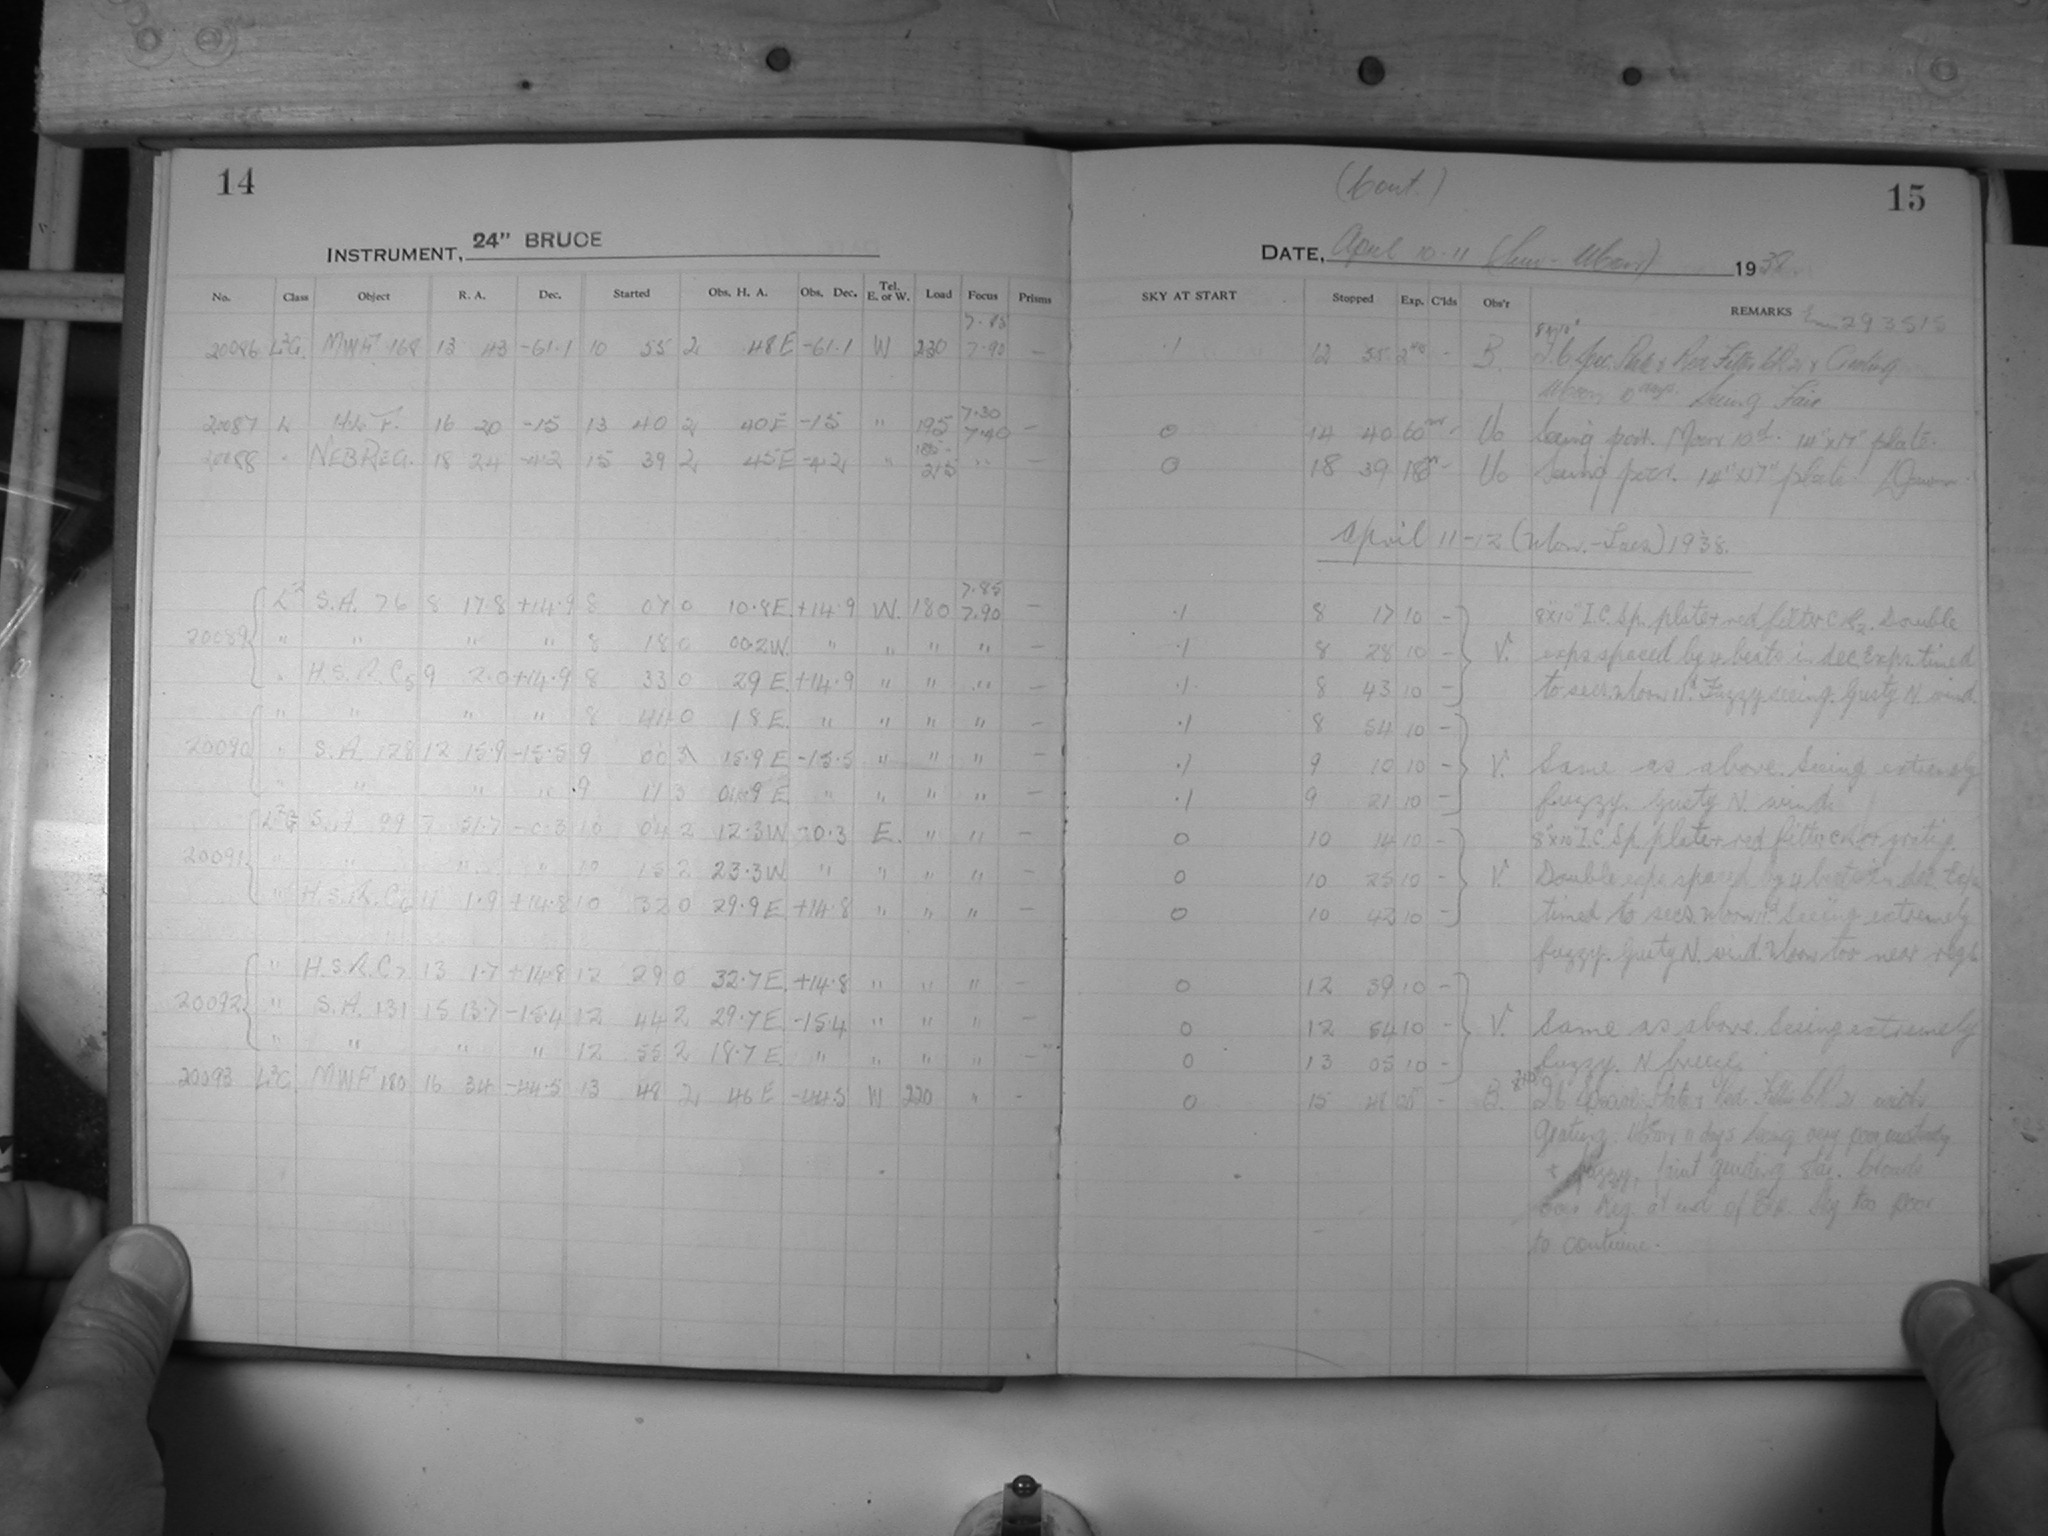 14
INSTRUMENT, 24" BRUCE
No. Class Object R. A. Dec. Started Obs. H. A. Obs. Dec. Tel. E. or W. Load Focus Prisms
7.85
20086 L³G. MWF 168 13 43 -61.1 10 55 2 48 E -61.1 W 230 7.90 —
7.30
20087 L 16 20 -15 13 40 2 40 E -15 " 195 7.40 —
20088 " NEBREG. 18 24 -42 15 39 2 45 E -42 " 215 " —
7.85
S.A. 76 8 17.8 +14.9 8 07 0 10.8 E +14.9 W. 180 7.90 —
20089 " " " " 8 18 0 00.2 W. " " " " —
" H.S.R.C5 9 2.0 +14.9 8 33 0 29 E +14.9 " " " —
" " " " 8 44 0 18 E. " " " " —
20090 " S.A. 128 12 15.9 -15.5 9 00 3 15.9 E -15.5 " " " —
" " " " 9 11 3 E " " " " —
L³G S.A. 99 7 51.7 -0.3 10 04 2 12.3 W -0.3 E. " " —
20091 " " " " 10 15 2 23.3 W " " " " —
" H.S.R.C6 11 1.9 +14.8 10 32 0 29.9 E +14.8 " " " —
" H.S.R.C7 13 1.7 +14.8 12 29 0 32.7 E. +14.8 " " " —
20092 " S.A. 131 15 13.7 -15.4 12 44 2 29.7 E. -15.4 " " " —
" " " " 12 55 2 18.7 E. " " " " —
20093 L³G. MWF 180 16 34 -44.5 13 48 2 46 E -44.5 W 220 " —
(Cont.)
15
DATE, April 10-11 (Sun-Mon) 1938
SKY AT START Stopped Exp. C'lds Obs'r REMARKS
8x10"
.1 12 55 — B. I.C. Spec. Plate & Red Filter & Grating
Moon Seeing Fair
0 14 40 60 — Uo Seeing poor. Moon 10d. 14"x17" plate.
0 18 39 180 — Uo Seeing poor. 14"x17" plate. Dawn
April 11-12 (Mon.-Tues) 1938.
.1 8 17 10 — 8"x10" I.C. Sp. plate + red filter CR2. Double
.1 8 28 10 — V. exps spaced by 4 beats in dec. Exps. timed
.1 8 43 10 — to secs. Moon 11d. Fuzzy seeing. Gusty N. wind.
.1 8 54 10 —
.1 9 10 10 — V. Same as above. Seeing extremely
.1 9 21 10 — fuzzy. Gusty N. wind.
0 10 14 10 — 8"x10" I.C. Sp. plate + red filter
0 10 25 10 — V. Double exps spaced by 4 beats in dec. Exps
0 10 42 10 — timed to secs. Moon 11d. Seeing extremely
fuzzy. Gusty N. wind. Moon too near
0 12 39 10 —
0 12 54 10 — V. Same as above. Seeing extremely
0 13 05 10 — fuzzy. N breeze.
0 15 48 — B. Plate & Red Filter with
Grating. Moon 11 days Seeing very poor
& fuzzy, faint guiding star. Clouds
over Reg. at end of Exp. Sky too poor
to continue.